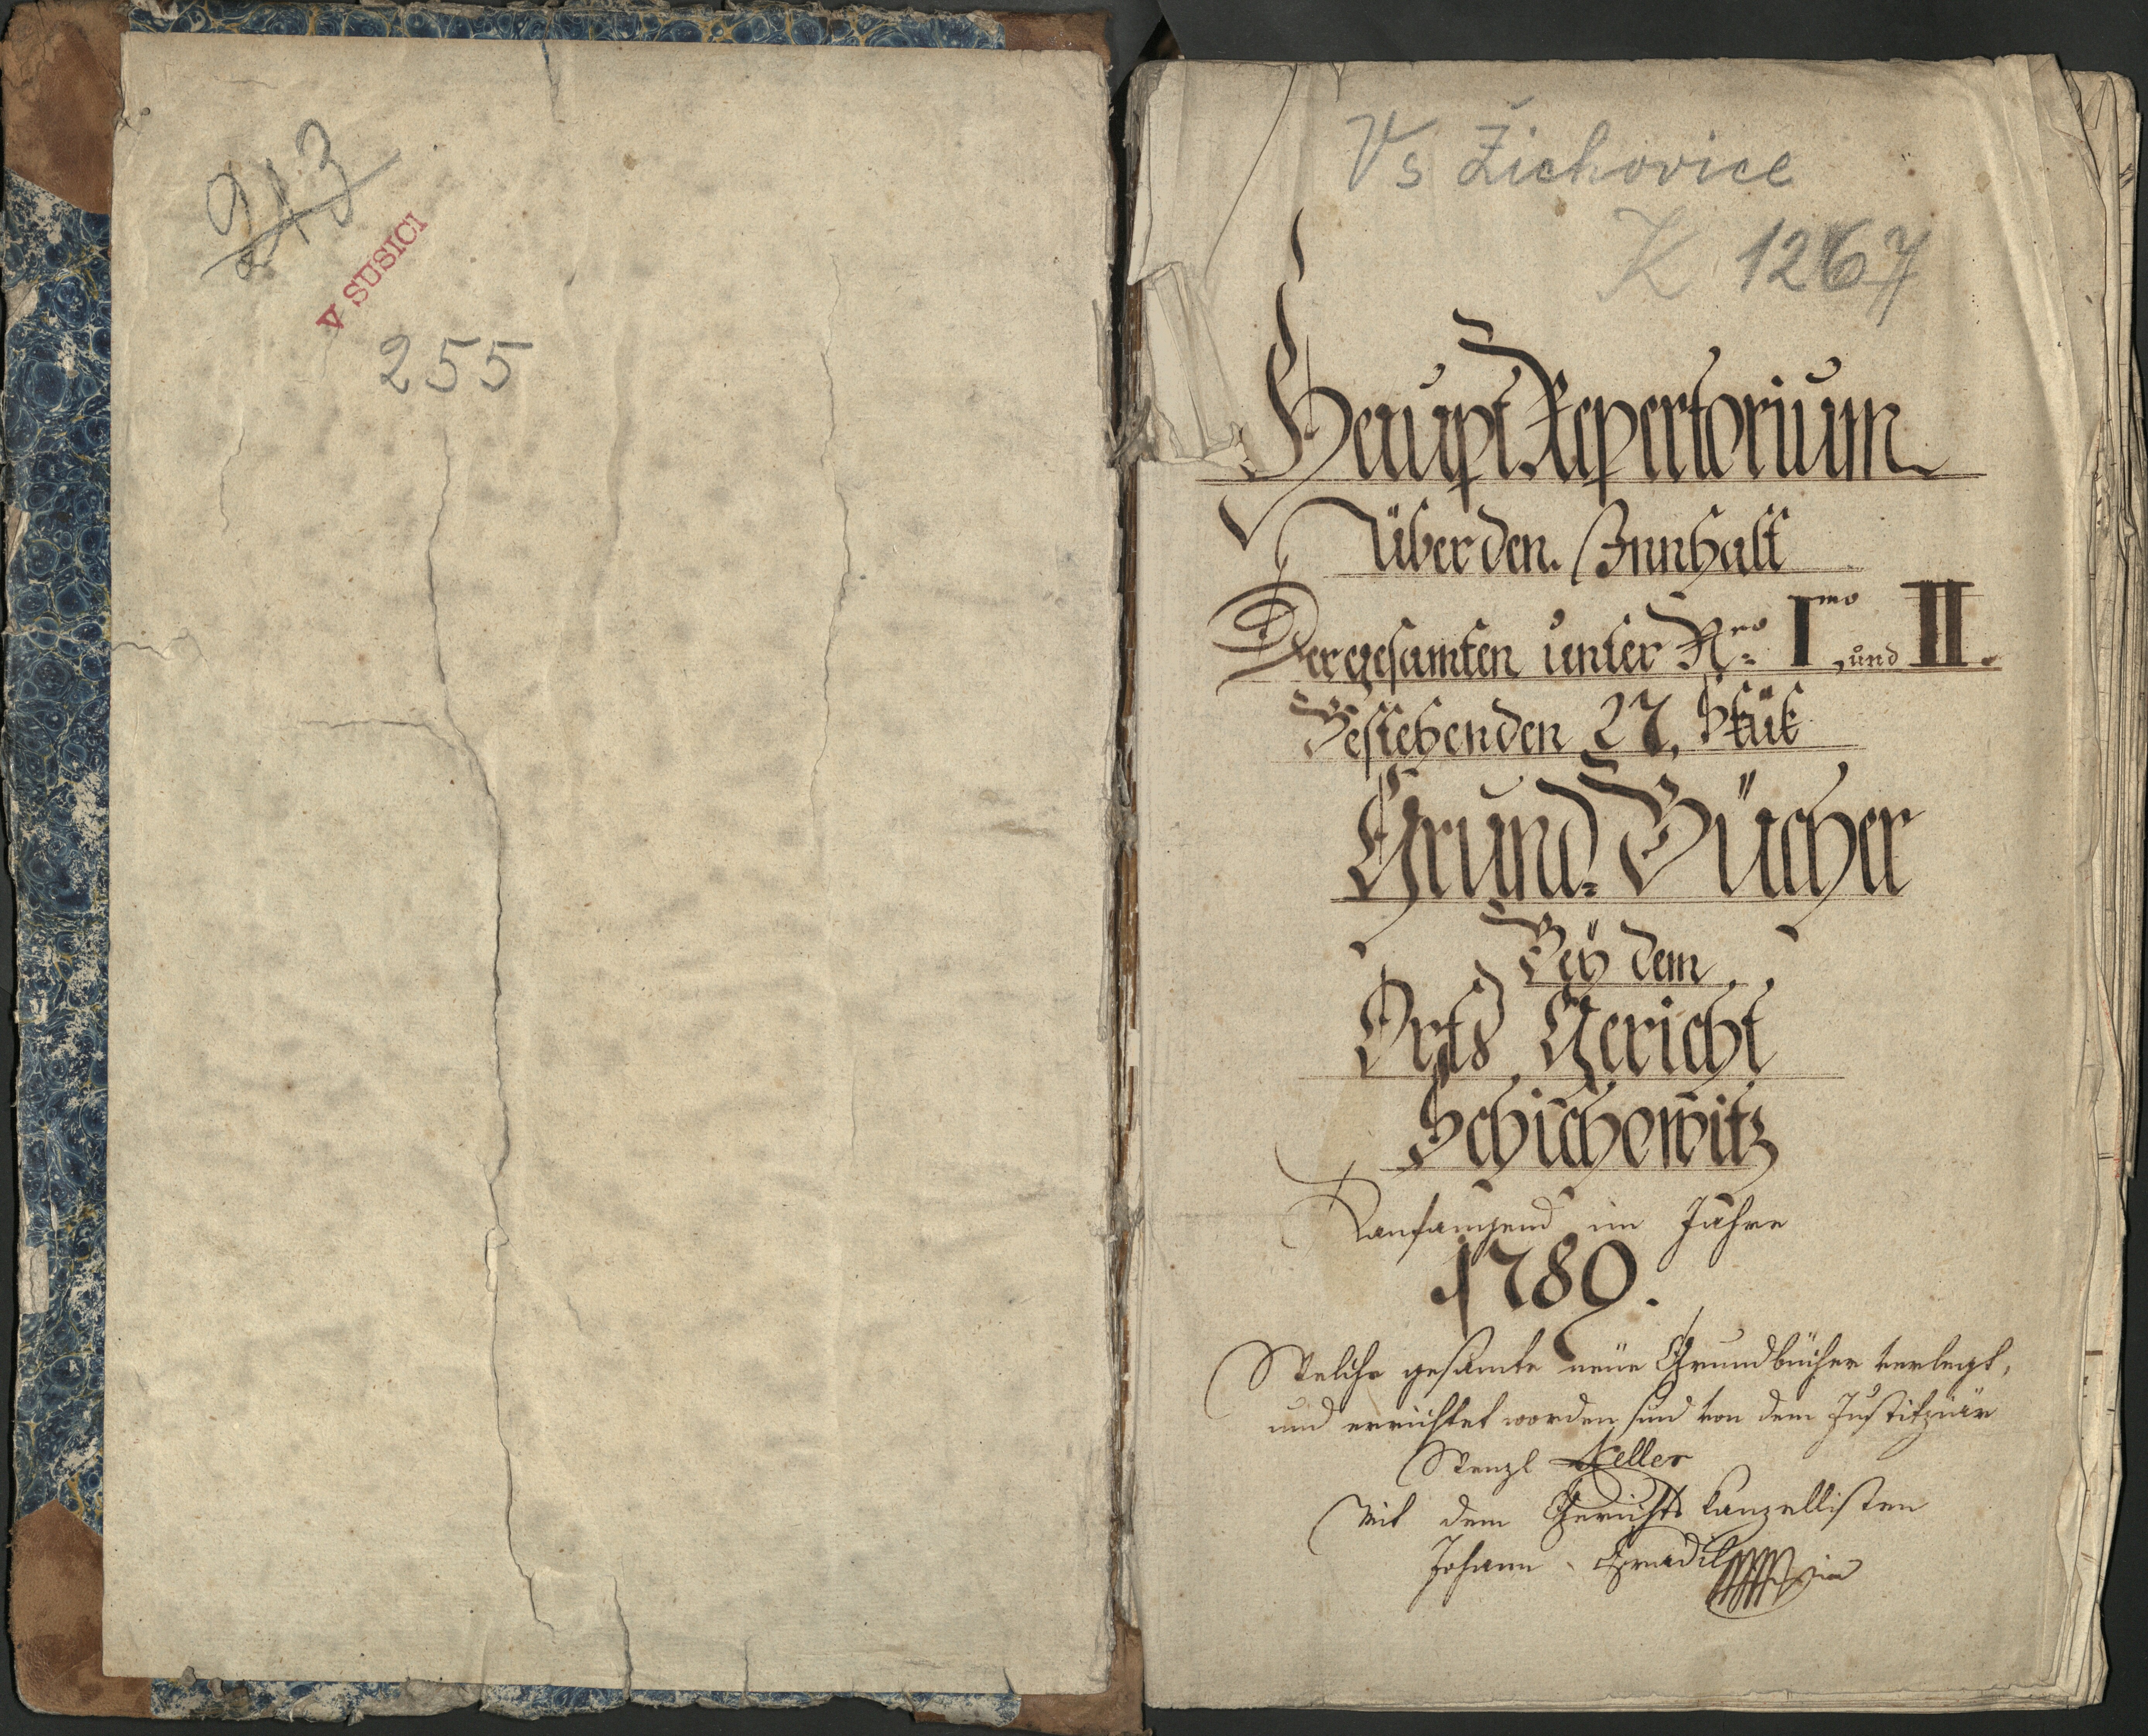 213
V SUSICI
255
Vs Žichovice
K 1267
Haupt Repertorium
über den Innhalt
Der gesamten unter Nro I.mo und II.
Bestehenden 27. Stük
Grund=Bücher
Beÿ dem
Orts Gericht
Schichowitz
anfangend im Jahre
1789.
Welche gesamte neüe Grundbücher verlegt,
und errichtet worden sind von dem Justitziär
Wenzl Keller
Mit dem Gerichts Kanzellisten
Johann